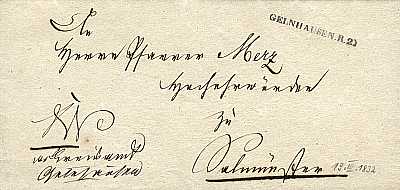 GELNHAUSEN.R.2)
An
Herrn Pfarrer Merz
Hochehrwürden
zu
Salmünster
13.III.1832